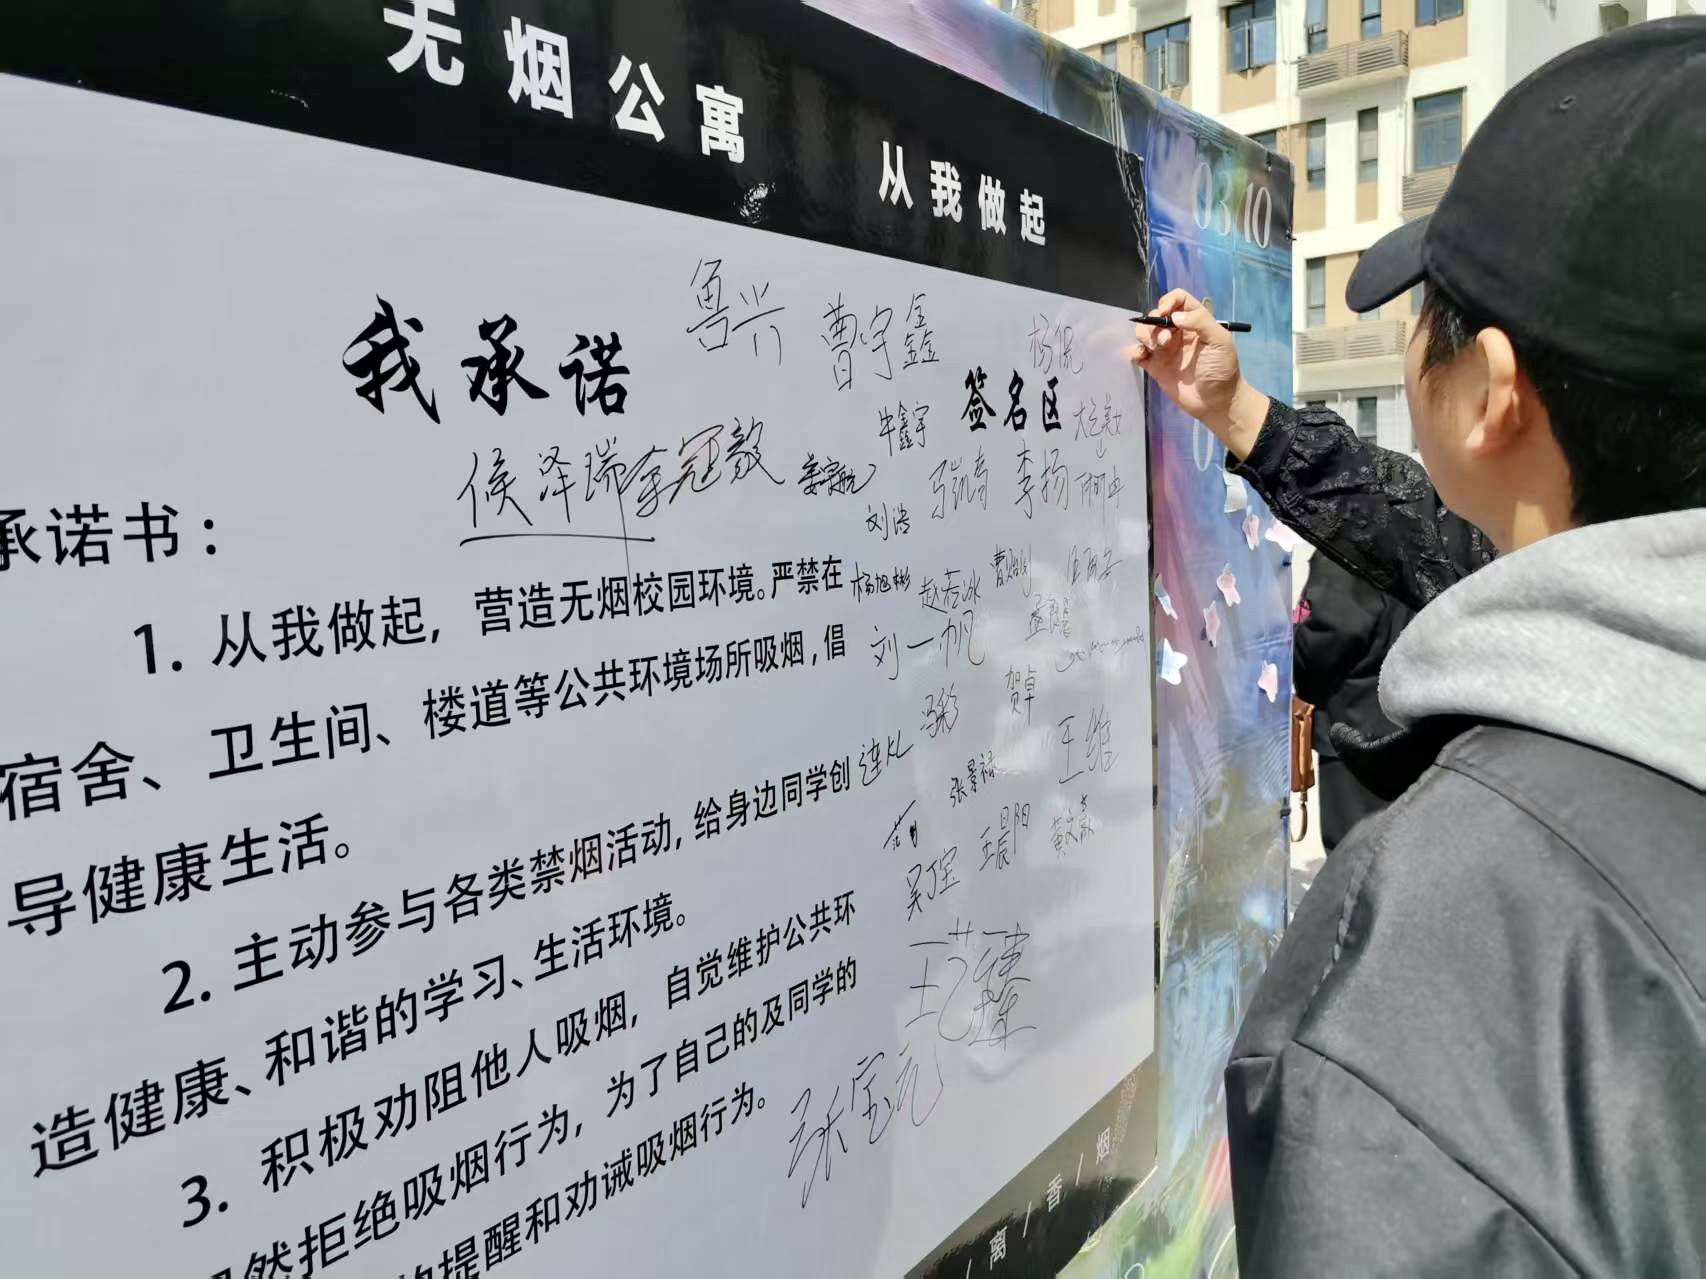 无烟公寓 从我做起
03 10
我承诺
鲁兴
曹宇鑫
杨侃
签名区
牛鑫宇
侯泽瑞
李冠毅
李扬
刘浩
承诺书：
1. 从我做起，营造无烟校园环境。严禁在
宿舍、卫生间、楼道等公共环境场所吸烟，倡
导健康生活。
2. 主动参与各类禁烟活动，给身边同学创
造健康、和谐的学习、生活环境。
3. 积极劝阻他人吸烟，自觉维护公共环
然拒绝吸烟行为，为了自己的及同学的
的提醒和劝诫吸烟行为。
杨旭彬
赵若冰
刘一帆
贺卓
冯彩
王维
张景禄
王晨阳
吴丁宝
张宝元
离/香/烟